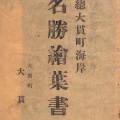 總大貫町海岸
名勝繪葉書
大貫町
大貫